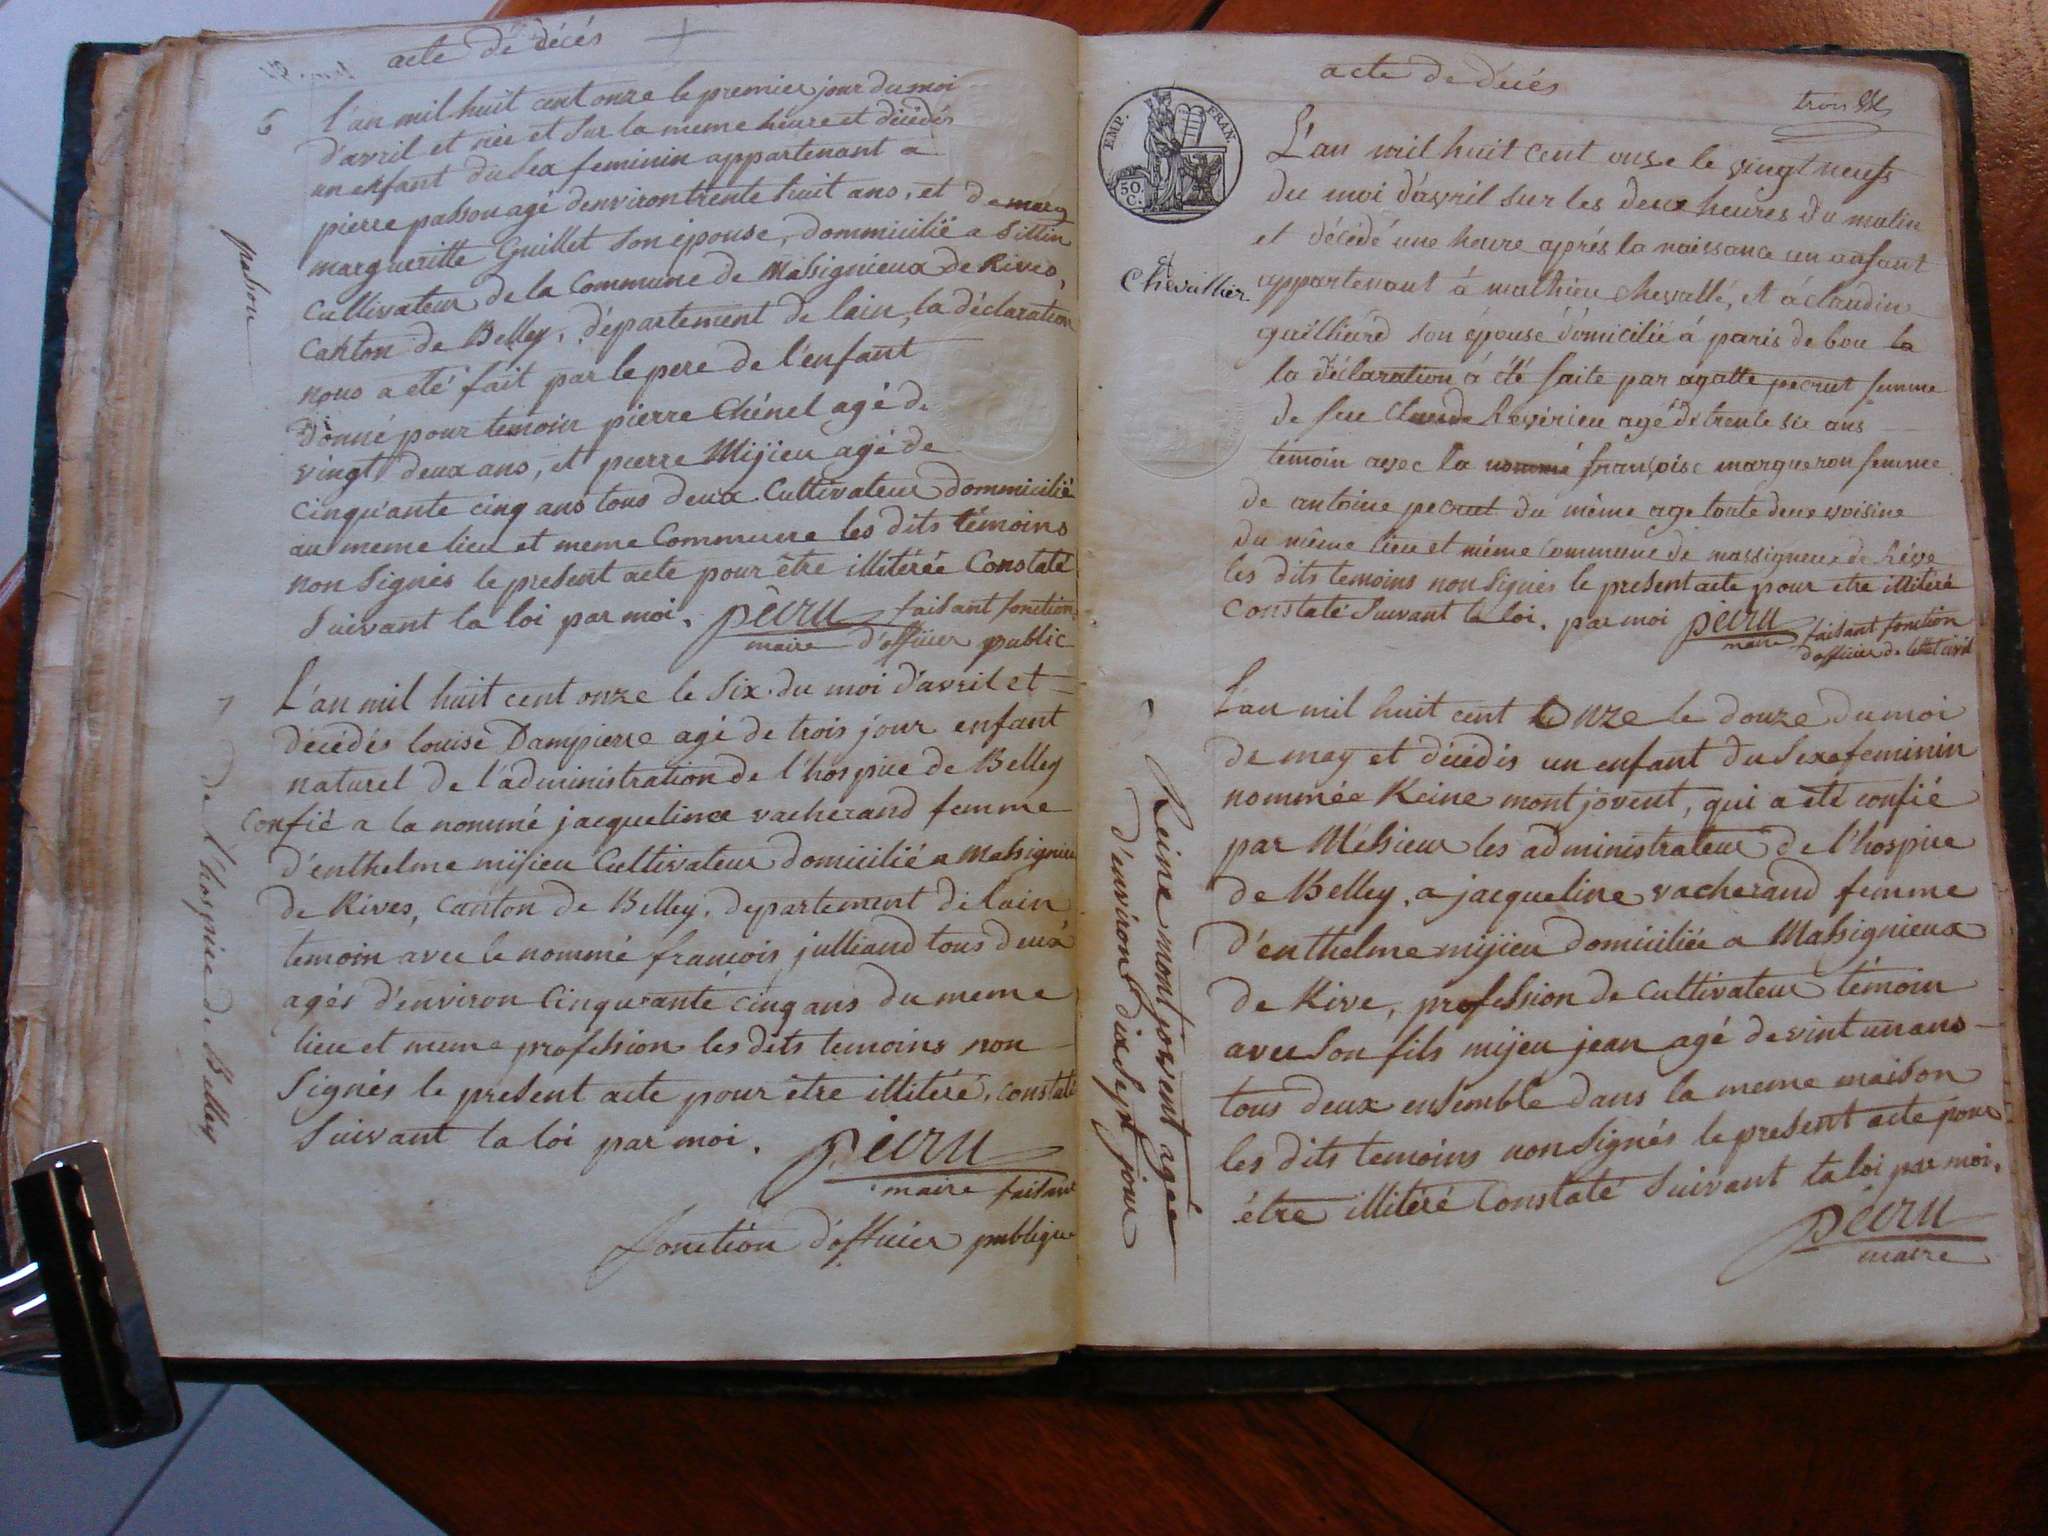 acte de décés
6
l'an mil huit cent onze le premier jour du moi
d'avril et née et sur la meme heure et décédés
un enfant du sex feminin appartenant a
pierre passou agé denviron trente huit ans, et de marg
margueritte Guillet son épouse, dommicilié a Sillin
Cultivateur de la Commune de Massignieux de Rives,
Canton de Belley, département de lain, la déclaration
nous a eté fait par le pere de l'enfant
Donné pour temoin pierre Chénel agé de
vingt deux ans, et pierre Mijieu agé de
cinqu'ante cinq ans tous deux Cultivateur dommicilié
au meme lieu et meme Commune les dits témoins
non signés le present acte pour être illitérée Constaté
Suivant la loi par moi. pécru faisant fonction
maire d'officier public
passou
7
L'an mil huit cent onze le six du moi d'avril et
décédés louise Dampierre agé de trois jour enfant
naturel de l'administration de l'hospice de Belley
confié a la nommé jacqueline vacherand femme
d'enthelme mijieu Cultivateur domicilié a Massignieu
de Rives, canton de Belley, departement de lain
temoin avec le nommé francois julliand tous deux
agés d'environ Cinquante cinq ans du meme
lieu et meme profession les dits temoins non
Signés le present acte pour être illitéré, constaté
Suivant la loi par moi. pécru
maire faisant
fonction d'officier publique
de l'hospice de Belley
acte de décés
trois
EMP. FRAN.
50 C.
L'an mil huit cent onze le vingt neufs
du moi d'avril sur les deux heures du matin
et décédé une heure aprés la naissance un anfant
appartenant á mathieu chevallé, et á claudin
guilliérd son épouse domicilié á paris de bou la
la déclaration á été faite par agatte pecrut femme
de feu Claude Révérieu agé de trente sie ans
temoin avec la nommé françoise margueron femme
de antoine pecrut du même age toute deux voisine
du même lieu et même commune de massigneux de Réve
les dits temoins non signés le present acte pour etre illitéré
Constaté Suivant la loi. par moi pécru faisant fonction
maire d'officier de lettat civil
Chevallier
L'an mil huit cent Onze le douze du moi
de may et décédés un enfant du sexe feminin
nommée Reine montjovent, qui a été confié
par Messieur les administrateur de l'hospice
de Belley, a jacqueline vacherand femme
d'enthelme mijieu domiciliée a Massignieux
de Rive, profession de cultivateur témoin
avec son fils mijeu jean agé de vint un ans
tous deux ensemble dans la meme maison
les dits temoins non signés le present acte pour
être illitéré Constaté Suivant la loi par moi.
pécru
maire
Reine montjovent agée
d'environ dix sept jour